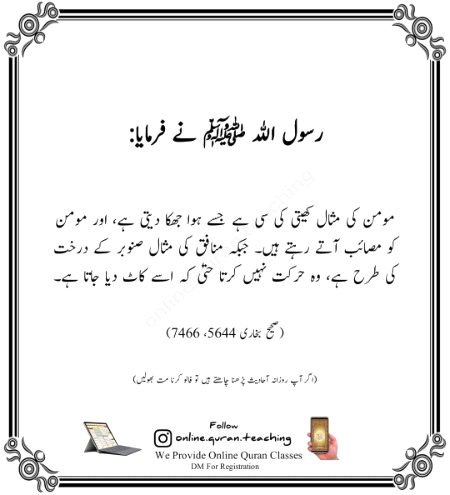 رسول اللہ ﷺ نے فرمایا:
مومن کی مثال کھیتی کی سی ہے جسے ہوا جھکا دیتی ہے، اور مومن
کو مصائب آتے رہتے ہیں۔ جبکہ منافق کی مثال صنوبر کے درخت
کی طرح ہے، وہ حرکت نہیں کرتا حتیٰ کہ اسے کاٹ دیا جاتا ہے۔
(صحیح بخاری 5644، 7466)
(اگر آپ روزانہ آحادیث پڑھنا چاہتے ہیں تو فالو کرنا مت بھولیں)
Follow
online.quran.teaching
We Provide Online Quran Classes
DM For Registration